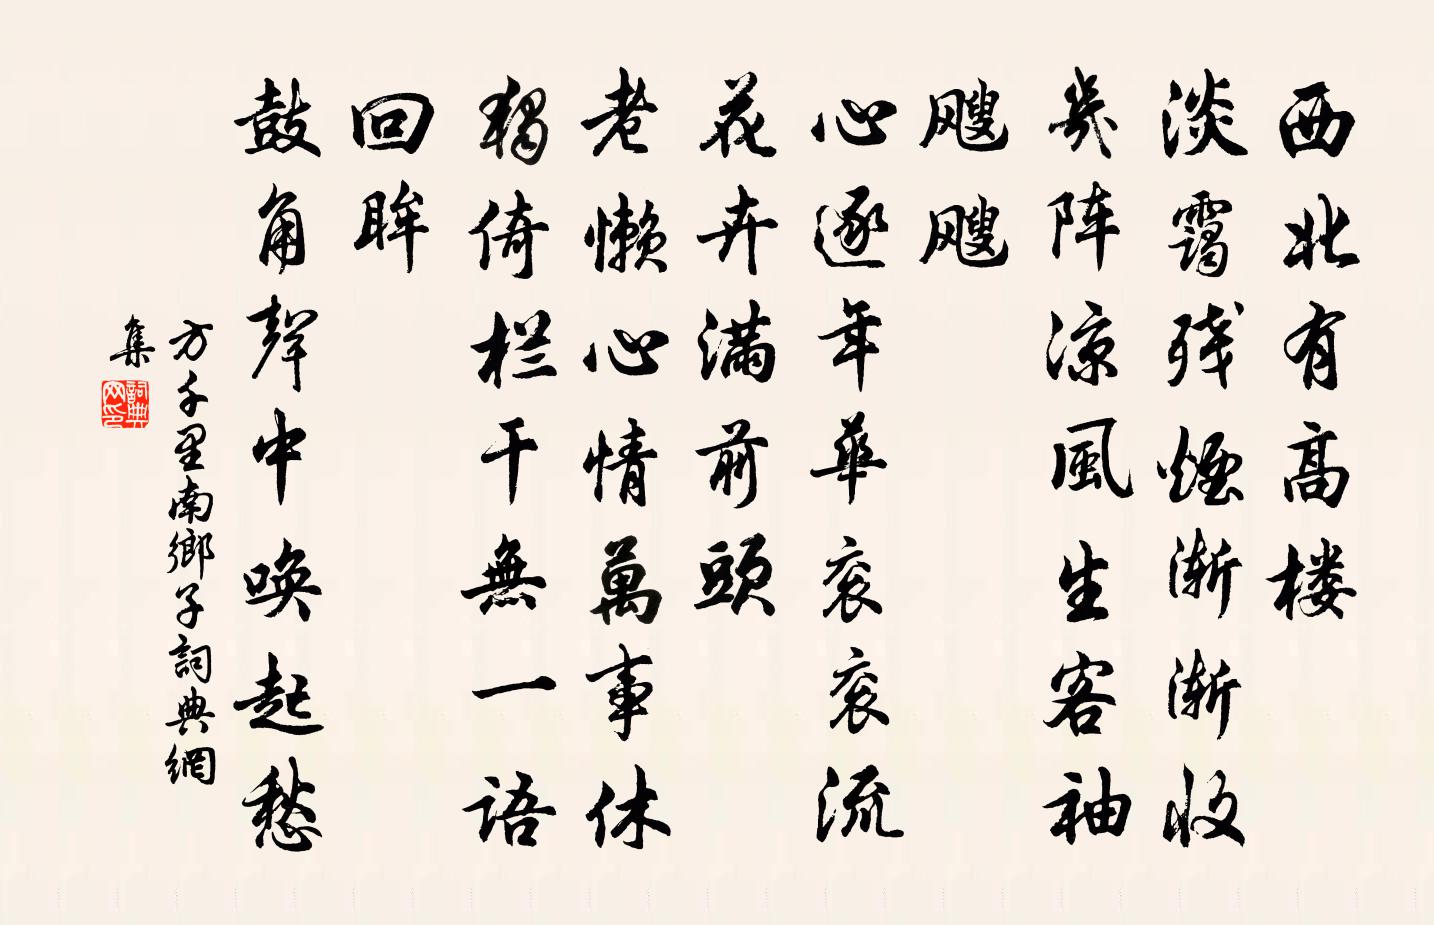 西北有高楼
淡霭残煙渐渐收
幾阵凉風生客袖
飕飕
心逐年華衮衮流
花卉满前頭
老懒心情萬事休
独倚栏干無一语
回眸
鼓角聲中唤起愁
方千里南鄉子詞典網
集
詞典網印